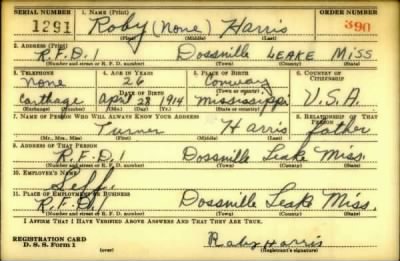 SERIAL NUMBER 1. NAME (Print) ORDER NUMBER
1291 Roby (None) Harris 390
(First) (Middle) (Last)
2. ADDRESS (Print)
R.F.D. 1 Dossville LEAKE Miss
(Number and street or R. F. D. number) (Town) (County) (State)
3. TELEPHONE 4. AGE IN YEARS 5. PLACE OF BIRTH 6. COUNTRY OF CITIZENSHIP
None 26 Conway
DATE OF BIRTH (Town or county)
Carthage April 28 1914 Mississippi U.S.A.
(Exchange) (Number) (Mo.) (Day) (Yr.) (State or country)
7. NAME OF PERSON WHO WILL ALWAYS KNOW YOUR ADDRESS 8. RELATIONSHIP OF THAT PERSON
Turner Harris father
(Mr., Mrs., Miss) (First) (Middle) (Last)
9. ADDRESS OF THAT PERSON
R.F.D. 1 Dossville Leake Miss.
(Number and street or R. F. D. number) (Town) (County) (State)
10. EMPLOYER'S NAME
Self
11. PLACE OF EMPLOYMENT OR BUSINESS
R.F.D. 1 Dossville Leake Miss.
(Number and street or R. F. D. number) (Town) (County) (State)
I AFFIRM THAT I HAVE VERIFIED ABOVE ANSWERS AND THAT THEY ARE TRUE.
REGISTRATION CARD
D. S. S. Form 1 (over) Roby Harris
(Registrant's signature)